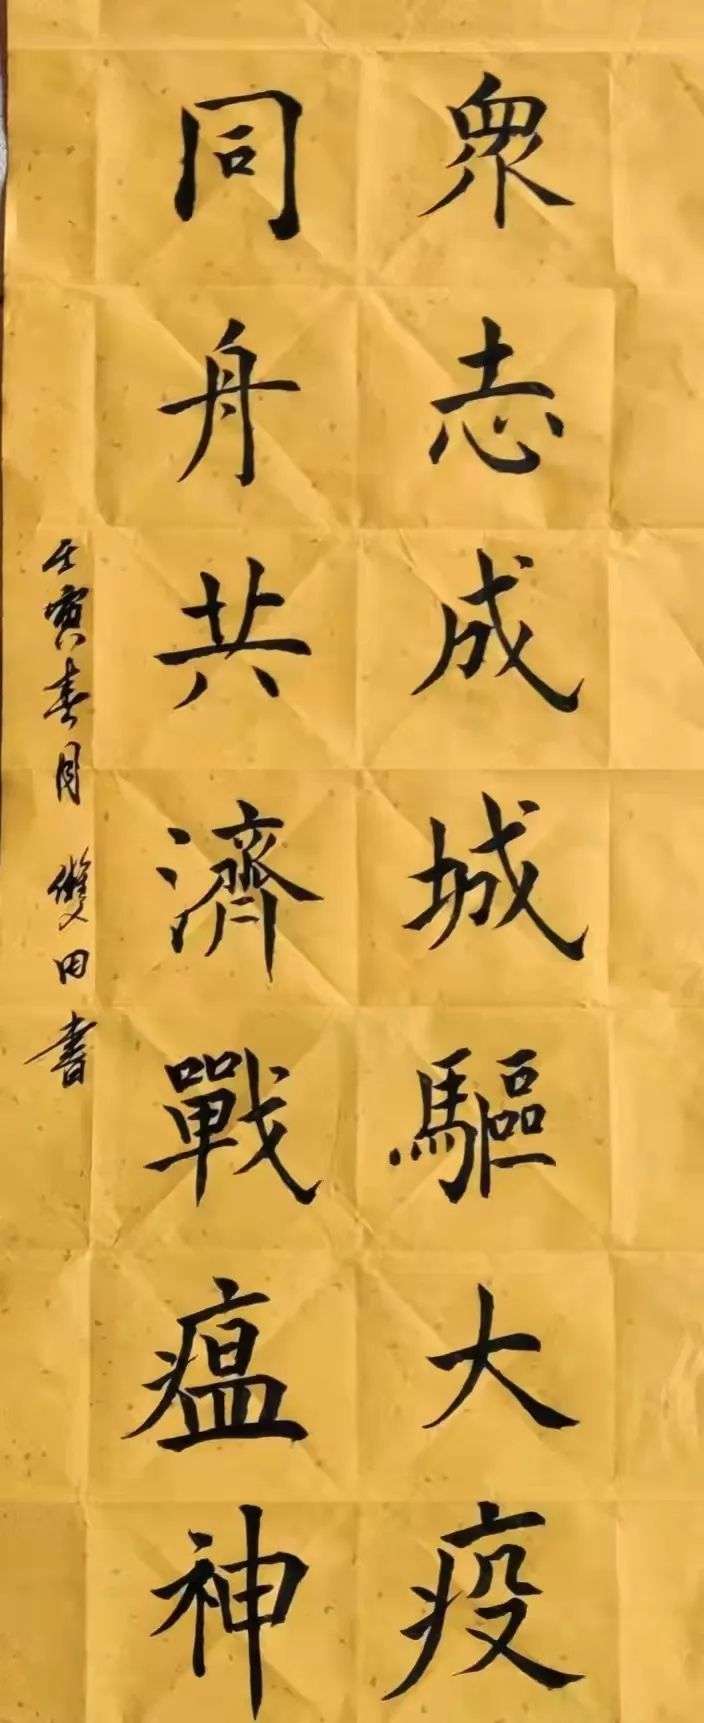 眾志成城驅大疫
同舟共濟戰瘟神
壬寅春月 雙田書